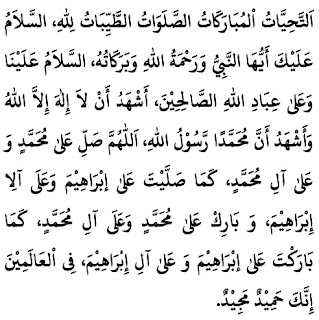 اَلتَّحِيَّاتُ اْلمُبَارَكَاتُ الصَّلَوَاتُ الطَّيِّبَاتُ لِلهِ، السَّلاَمُ
عَلَيْكَ أَيُّهَا النَّبِيُّ وَرَحْمَةُ اللهِ وَبَرَكَاتُهُ، السَّلاَمُ عَلَيْنَا
وَعَلىَ عِبَادِ اللهِ الصَّالِحِيْنَ، أَشْهَدُ أَنْ لاَ إِلٰهَ إِلاَّ اللهُ
وَأَشْهَدُ أَنَّ مُحَمَّدًا رَّسُوْلُ اللهِ، اَللّٰهُمَّ صَلِّ عَلىَ مُحَمَّدٍ وَ
عَلىَ آلِ مُحَمَّدٍ، كَمَا صَلَّيْتَ عَلىَ إبْرَاهِيْمَ وَعَلَى آلِا
إِبْرَاهِيْمَ، وَ بَارِكْ عَلىَ مُحَمَّدٍ وَعَلَى آلِ مُحَمَّدٍ، كَمَا
بَارَكْتَ عَلىَ إبْرَاهِيْمَ وَ عَلىَ آلِ إِبْرَاهِيْمَ، فِى اْلعَالَمِيْنَ
إِنَّكَ حَمِيْدٌ مَجِيْدٌ.